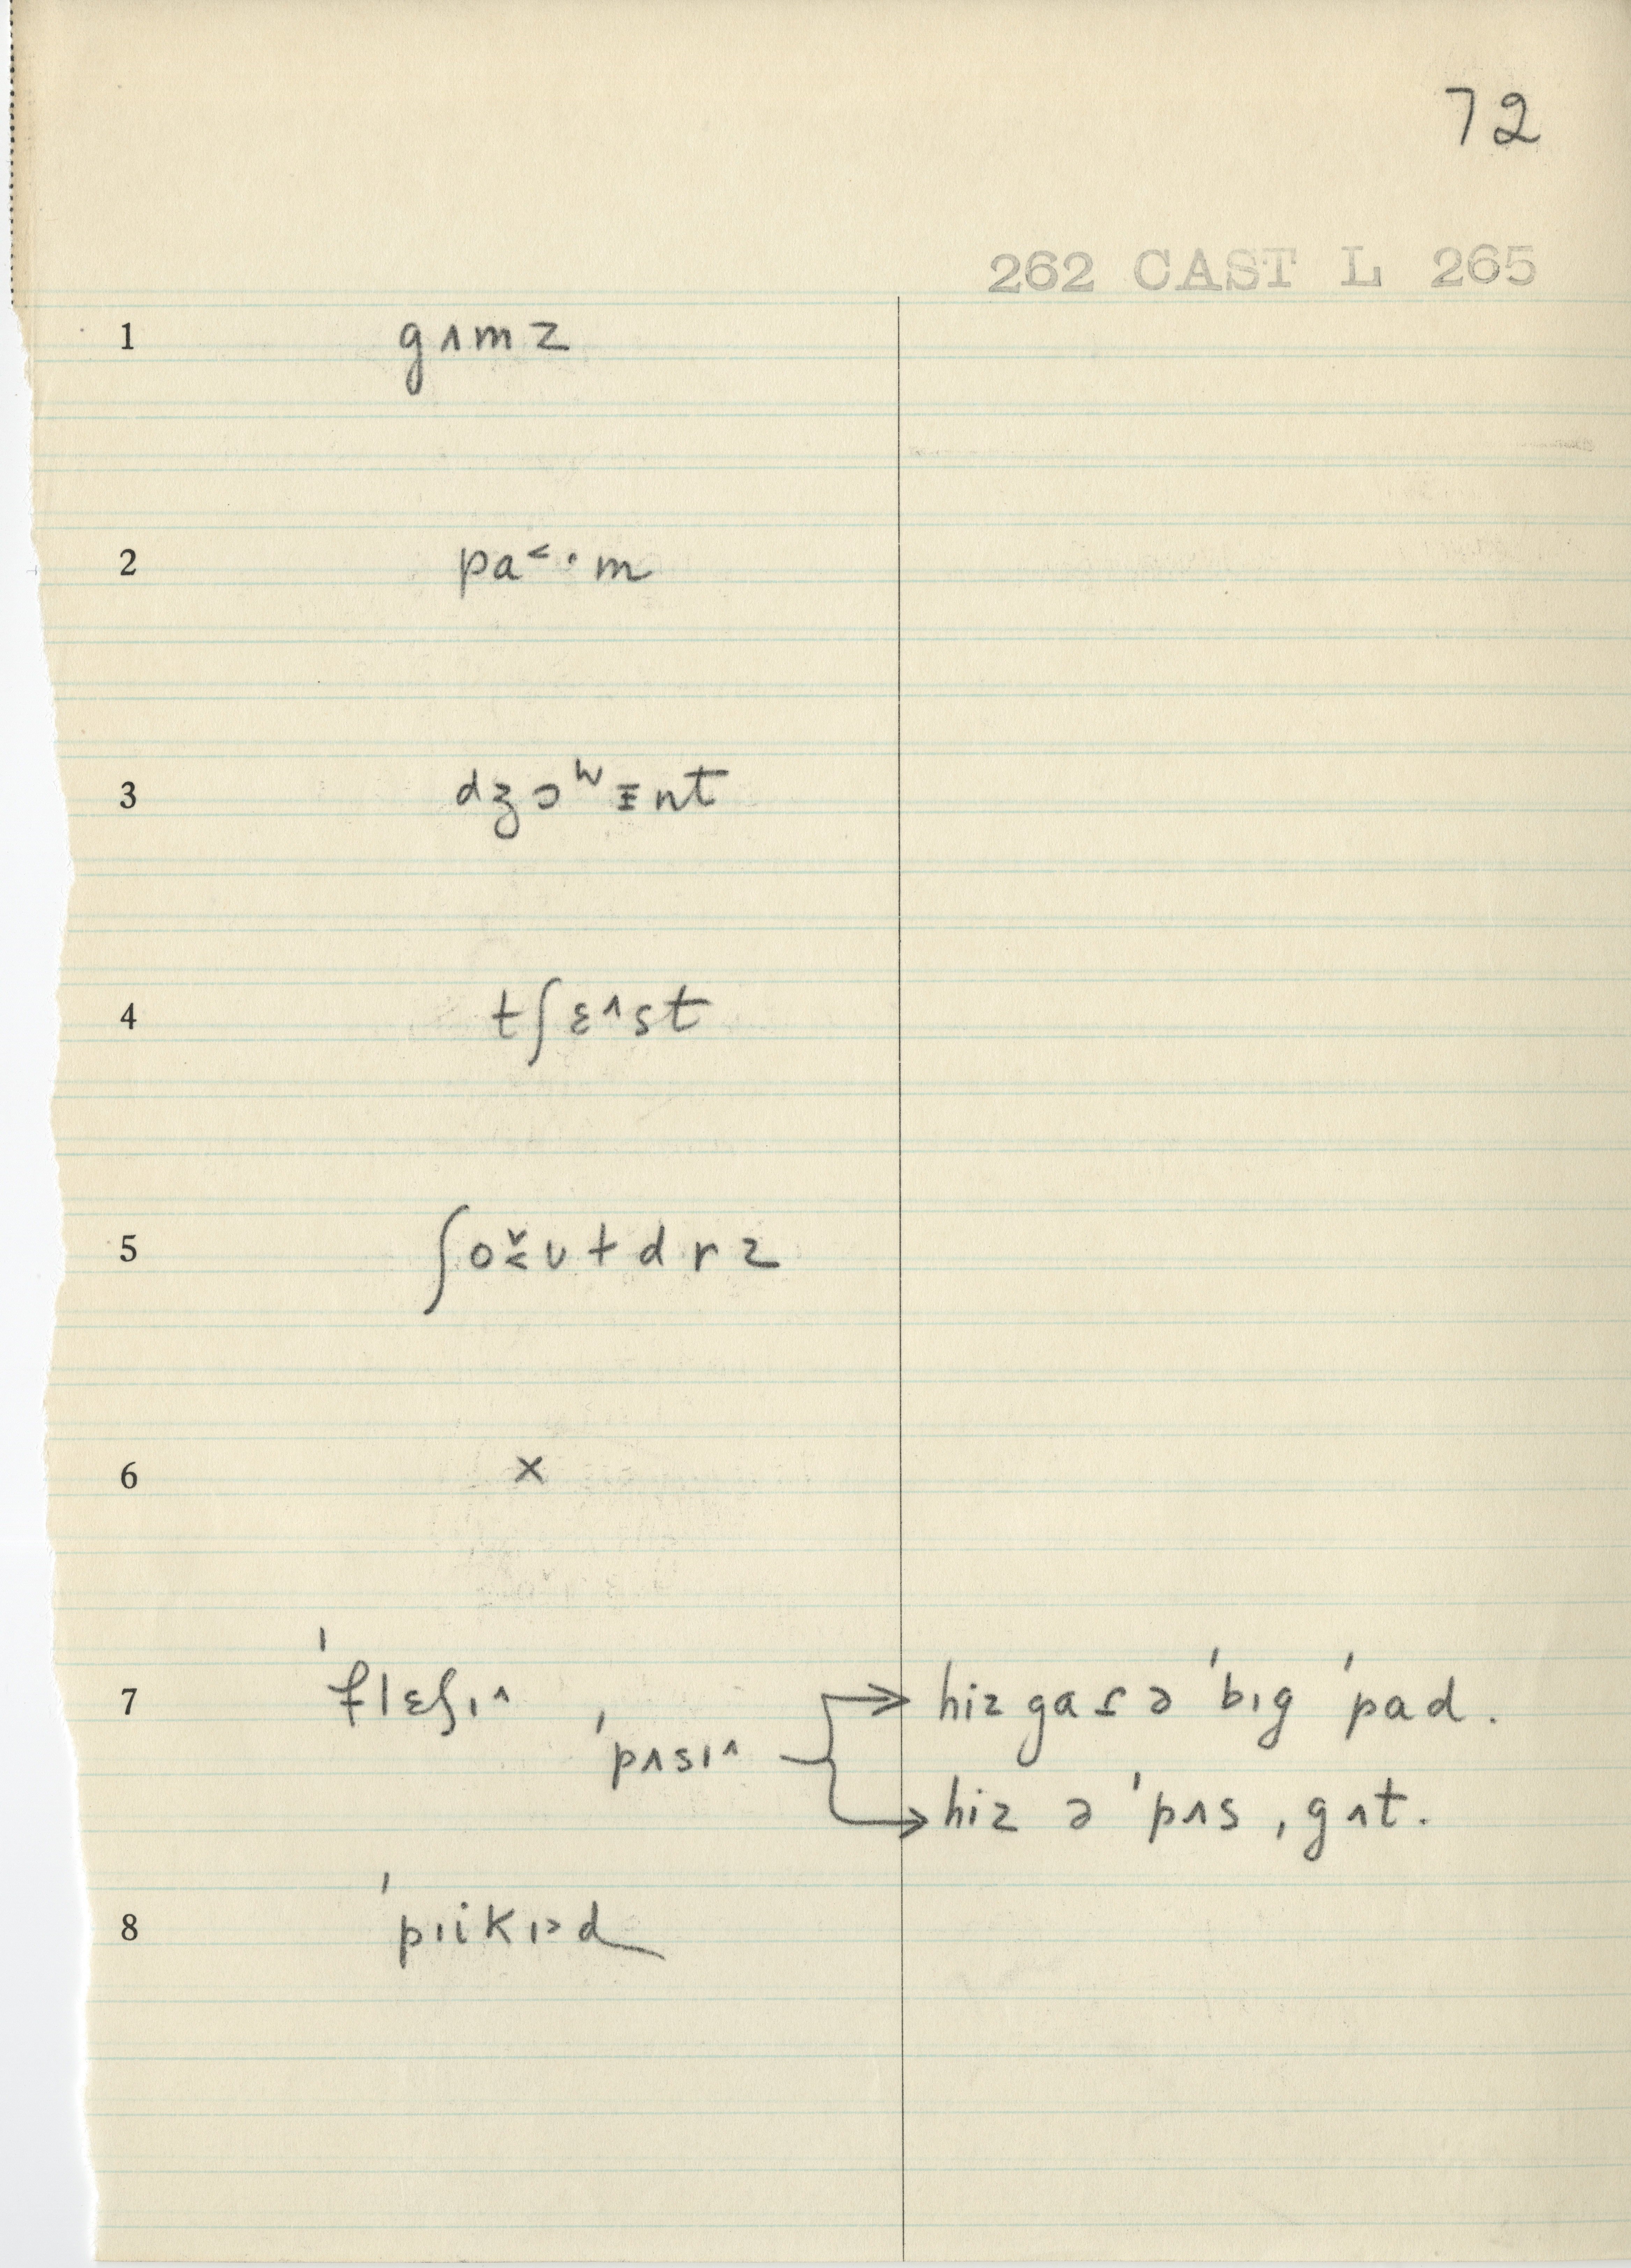 72
262 CAST L 265
1 gʌmz
2 pa˂·m
3 dʒɔʷɪnt
4 tʃɛ^st
5 ʃo̬˂ʊtdrz
6 x
7 ˈflɛʃɪ^ → hiz gaɾə ˈbɪg ˈpad.
ˈpʌsɪ^ → hiz ə ˈpʌsˌgʌt.
8 ˈpɪikɪ˃d